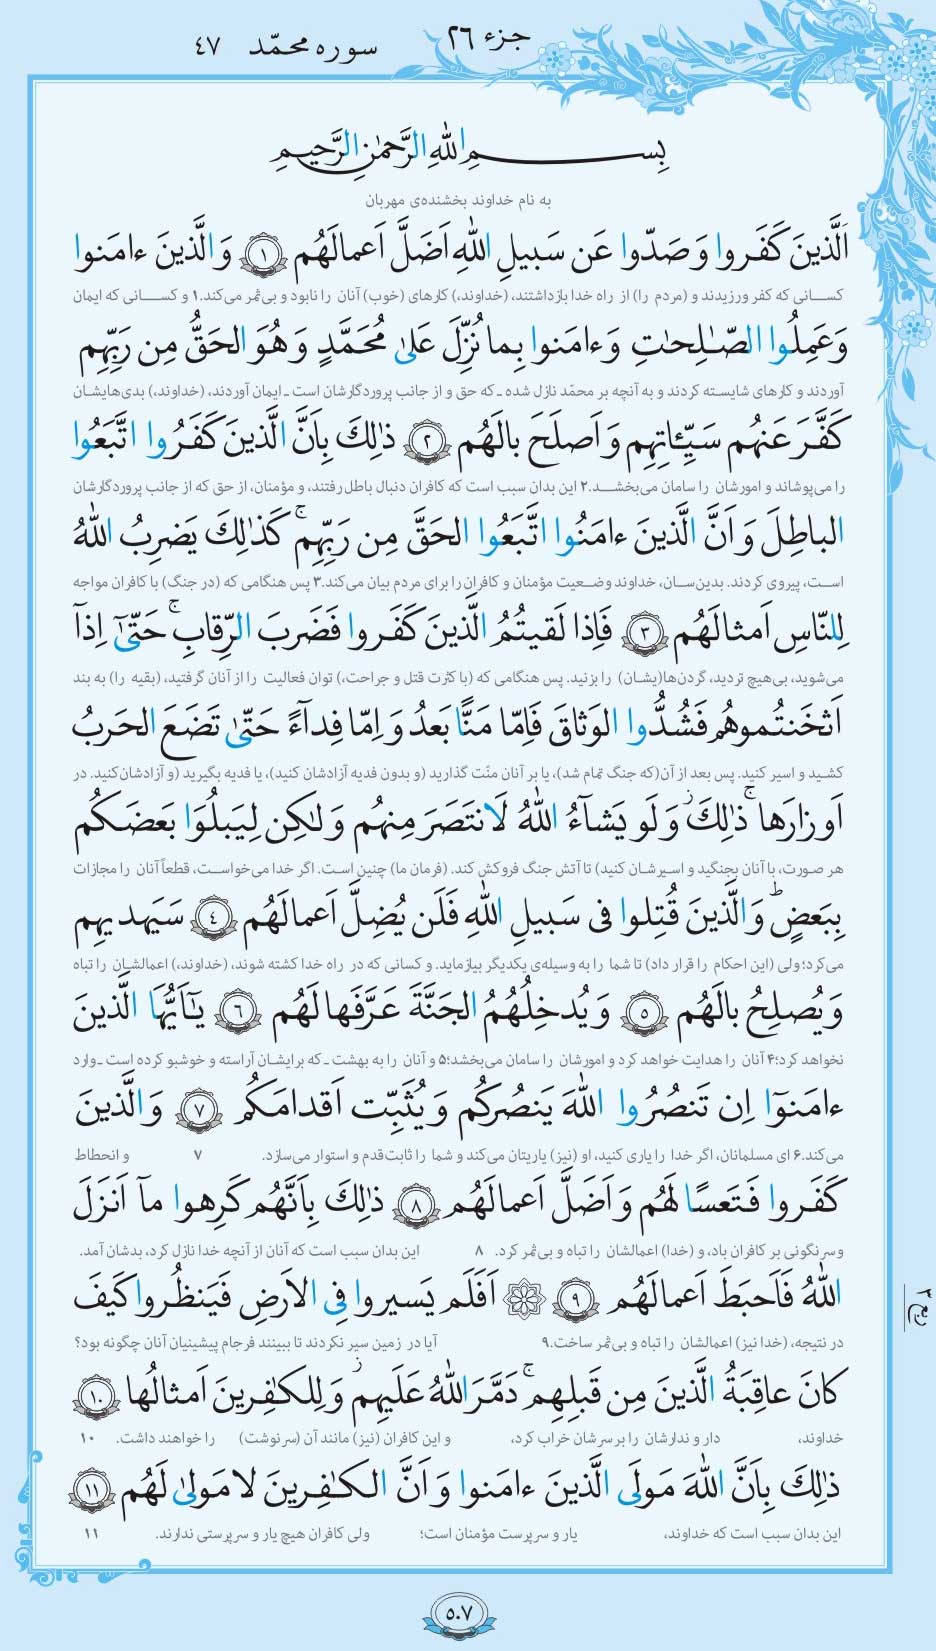 جزء ۲۶
سوره محمّد ۴۷
بِسمِ اللّٰهِ الرَّحمٰنِ الرَّحیمِ
به نام خداوند بخشنده‌ی مهربان
اَلَّذینَ کَفَروا وَ صَدّوا عَن سَبیلِ اللّٰهِ اَضَلَّ اَعمالَهُم ﴿۱﴾ وَالَّذینَ ءامَنوا
کسانی که کفر ورزیدند و (مردم را) از راه خدا بازداشتند، (خداوند،) کارهای (خوب) آنان را نابود و بی‌ثمر می‌کند.۱ و کسانی که ایمان
وَعَمِلُوا الصّٰلِحٰتِ وَءامَنوا بِما نُزِّلَ عَلیٰ مُحَمَّدٍ وَهُوَ الحَقُّ مِن رَبِّهِم
آوردند و کارهای شایسته کردند و به آنچه بر محمّد نازل شده ـ که حق و از جانب پروردگارشان است ـ ایمان آوردند، (خداوند،) بدی‌هایشان
کَفَّرَ عَنهُم سَیِّـٔاتِهِم وَ اَصلَحَ بالَهُم ﴿۲﴾ ذٰلِكَ بِاَنَّ الَّذینَ کَفَرُوا اتَّبَعُوا
را می‌پوشاند و امورشان را سامان می‌بخشد.۲ این بدان سبب است که کافران دنبال باطل رفتند، و مؤمنان، از حق که از جانب پروردگارشان
الباطِلَ وَ اَنَّ الَّذینَ ءامَنُوا اتَّبَعُوا الحَقَّ مِن رَبِّهِم ۚ کَذٰلِكَ یَضرِبُ اللّٰهُ
است، پیروی کردند. بدین‌سان، خداوند وضعیت مؤمنان و کافران را برای مردم بیان می‌کند.۳ پس هنگامی که (در جنگ) با کافران مواجه
لِلنّاسِ اَمثالَهُم ﴿۳﴾ فَاِذا لَقیتُمُ الَّذینَ کَفَروا فَضَربَ الرِّقابِ ۚ حَتّیٰٓ اِذآ
می‌شوید، بی‌هیچ تردید، گردن‌ها(یشان) را بزنید. پس هنگامی که (با کثرت قتل و جراحت،) توان فعالیت را از آنان گرفتید، (بقیه را) به بند
اَثخَنتُموهُم فَشُدُّوا الوَثاقَ فَاِمّا مَنًّا بَعدُ وَ اِمّا فِدآءً حَتّیٰ تَضَعَ الحَربُ
کشید و اسیر کنید. پس بعد از آن(که جنگ تمام شد)، یا بر آنان منّت گذارید (و بدون فدیه آزادشان کنید)، یا فدیه بگیرید (و آزادشان کنید. در
اَوزارَها ۚ ذٰلِكَ ز وَلَو یَشآءُ اللّٰهُ لَانتَصَرَ مِنهُم وَلٰکِن لِیَبلُوَا بَعضَکُم
هر صورت، با آنان بجنگید و اسیرشان کنید) تا آتش جنگ فروکش کند. (فرمان ما) چنین است. اگر خدا می‌خواست، قطعاً آنان را مجازات
بِبَعضٍ ؕ وَالَّذینَ قُتِلوا فی سَبیلِ اللّٰهِ فَلَن یُضِلَّ اَعمالَهُم ﴿۴﴾ سَیَهدیهِم
می‌کرد؛ ولی (این احکام را قرار داد) تا شما را به وسیله‌ی یکدیگر بیازماید. و کسانی که در راه خدا کشته شوند، (خداوند،) اعمالشان را تباه
وَیُصلِحُ بالَهُم ﴿۵﴾ وَیُدخِلُهُمُ الجَنَّةَ عَرَّفَها لَهُم ﴿۶﴾ یٰٓاَیُّهَا الَّذینَ
نخواهد کرد؛۴ آنان را هدایت خواهد کرد و امورشان را سامان می‌بخشد؛۵ و آنان را به بهشت ـ که برایشان آراسته و خوشبو کرده است ـ وارد
ءامَنوٓا اِن تَنصُرُوا اللّٰهَ یَنصُرکُم وَیُثَبِّت اَقدامَکُم ﴿۷﴾ وَالَّذینَ
می‌کند.۶ ای مسلمانان، اگر خدا را یاری کنید، او (نیز) یاریتان می‌کند و شما را ثابت‌قدم و استوار می‌سازد. ۷ و انحطاط
کَفَروا فَتَعسًا لَهُم وَ اَضَلَّ اَعمالَهُم ﴿۸﴾ ذٰلِكَ بِاَنَّهُم کَرِهوا مآ اَنزَلَ
و سرنگونی بر کافران باد، و (خدا) اعمالشان را تباه و بی‌ثمر کرد. ۸ این بدان سبب است که آنان از آنچه خدا نازل کرد، بدشان آمد.
اللّٰهُ فَاَحبَطَ اَعمالَهُم ﴿۹﴾ ۞ اَفَلَم یَسیروا فِی الاَرضِ فَیَنظُروا کَیفَ
در نتیجه، (خدا نیز) اعمالشان را تباه و بی‌ثمر ساخت.۹ آیا در زمین سیر نکردند تا ببینند فرجام پیشینیان آنان چگونه بود؟
ربع ۲
کانَ عاقِبَةُ الَّذینَ مِن قَبلِهِم ۚ دَمَّرَ اللّٰهُ عَلَیهِم ز وَلِلکٰفِرینَ اَمثالُها ﴿۱۰﴾
خداوند، دار و ندارشان را بر سرشان خراب کرد، و این کافران (نیز) مانند آن (سرنوشت) را خواهند داشت. ۱۰
ذٰلِكَ بِاَنَّ اللّٰهَ مَولَی الَّذینَ ءامَنوا وَ اَنَّ الکٰفِرینَ لا مَولیٰ لَهُم ﴿۱۱﴾
این بدان سبب است که خداوند، یار و سرپرست مؤمنان است؛ ولی کافران هیچ یار و سرپرستی ندارند. ۱۱
۵۰۷